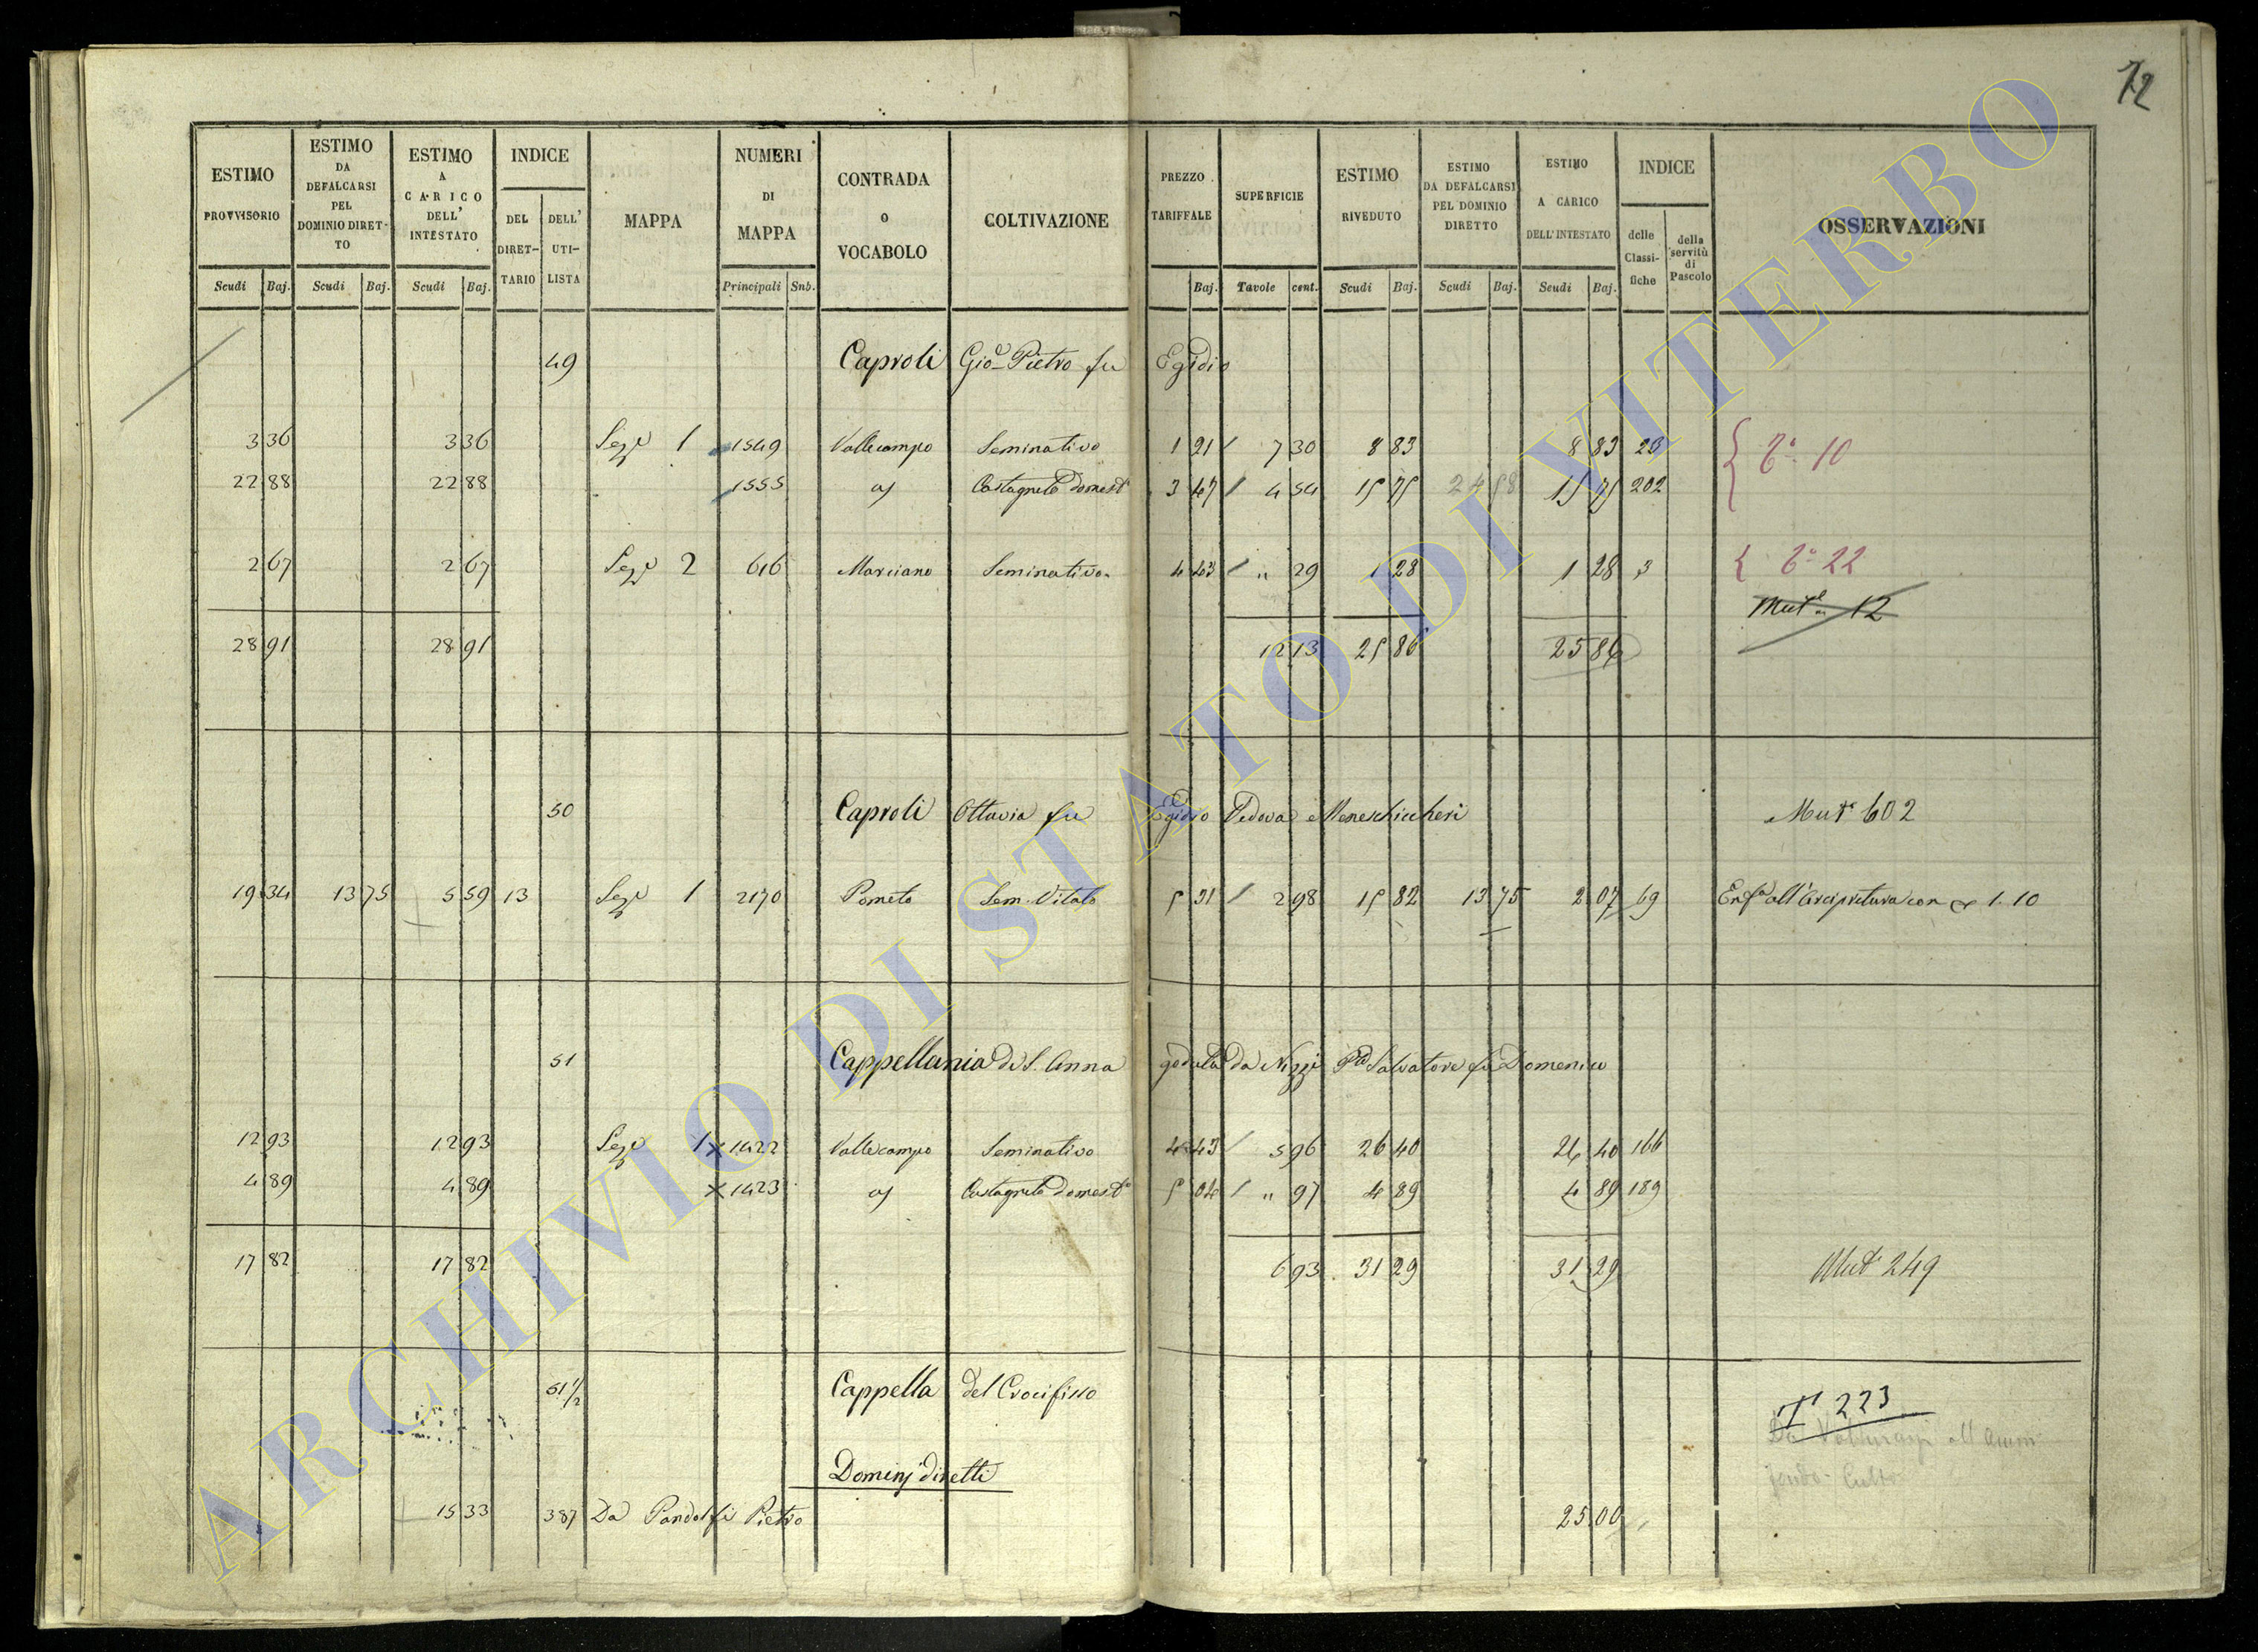 72
ESTIMO PROVVISORIO Scudi Baj.
ESTIMO DA DEFALCARSI PEL DOMINIO DIRETTO Scudi Baj.
ESTIMO A CARICO DELL' INTESTATO Scudi Baj.
INDICE DEL DIRETTARIO DELL' UTILISTA
MAPPA
NUMERI DI MAPPA Principali Sub.
CONTRADA O VOCABOLO
COLTIVAZIONE
PREZZO TARIFFALE Baj.
SUPERFICIE Tavole cent.
ESTIMO RIVEDUTO Scudi Baj.
ESTIMO DA DEFALCARSI PEL DOMINIO DIRETTO Scudi Baj.
ESTIMO A CARICO DELL'INTESTATO Scudi Baj.
INDICE delle Classifiche della servitù di Pascolo
OSSERVAZIONI
49 Caproli Gio. Pietro fu Egidio
3 36 3 36 Sez.e 1 1549 Vallecampo Seminativo 1 21 7 30 8 83 8 83 26
22 88 22 88 1555 Castagneto domest. 3 47 4 54 15 75 24 58 15 75 202 { 10
2 67 2 67 Sez.e 2 616 Marciano Seminativo 4 43 " 29 1 28 1 28 3 { 22
Mut. 12
28 91 28 91 12 13 25 86 25 86
50 Caproli Ottavia fu Egidio Vedova Meneschiccheri Mut. 602
19 34 13 75 5 59 13 Sez.e 1 2170 Pometo Sem. Vitato 5 31 2 98 15 82 13 75 2 07 69 Enf.a all'Arcipretura con 1.10
51 Cappellania di S. Anna goduta da Nizzi Salvatore fu Domenico
12 93 12 93 Sez.e 1 x 1422 Vallecampo Seminativo 4 43 5 96 26 40 26 40 166
4 89 4 89 x 1423 Castagneto domest. 5 04 " 97 4 89 4 89 189
17 82 17 82 6 93 31 29 31 29 Mut. 249
51 1/2 Cappella del Crocifisso T 223
Dominj diretti
15 33 387 Da Pandolfi Pietro 25 00
ARCHIVIO DI STATO DI VITERBO